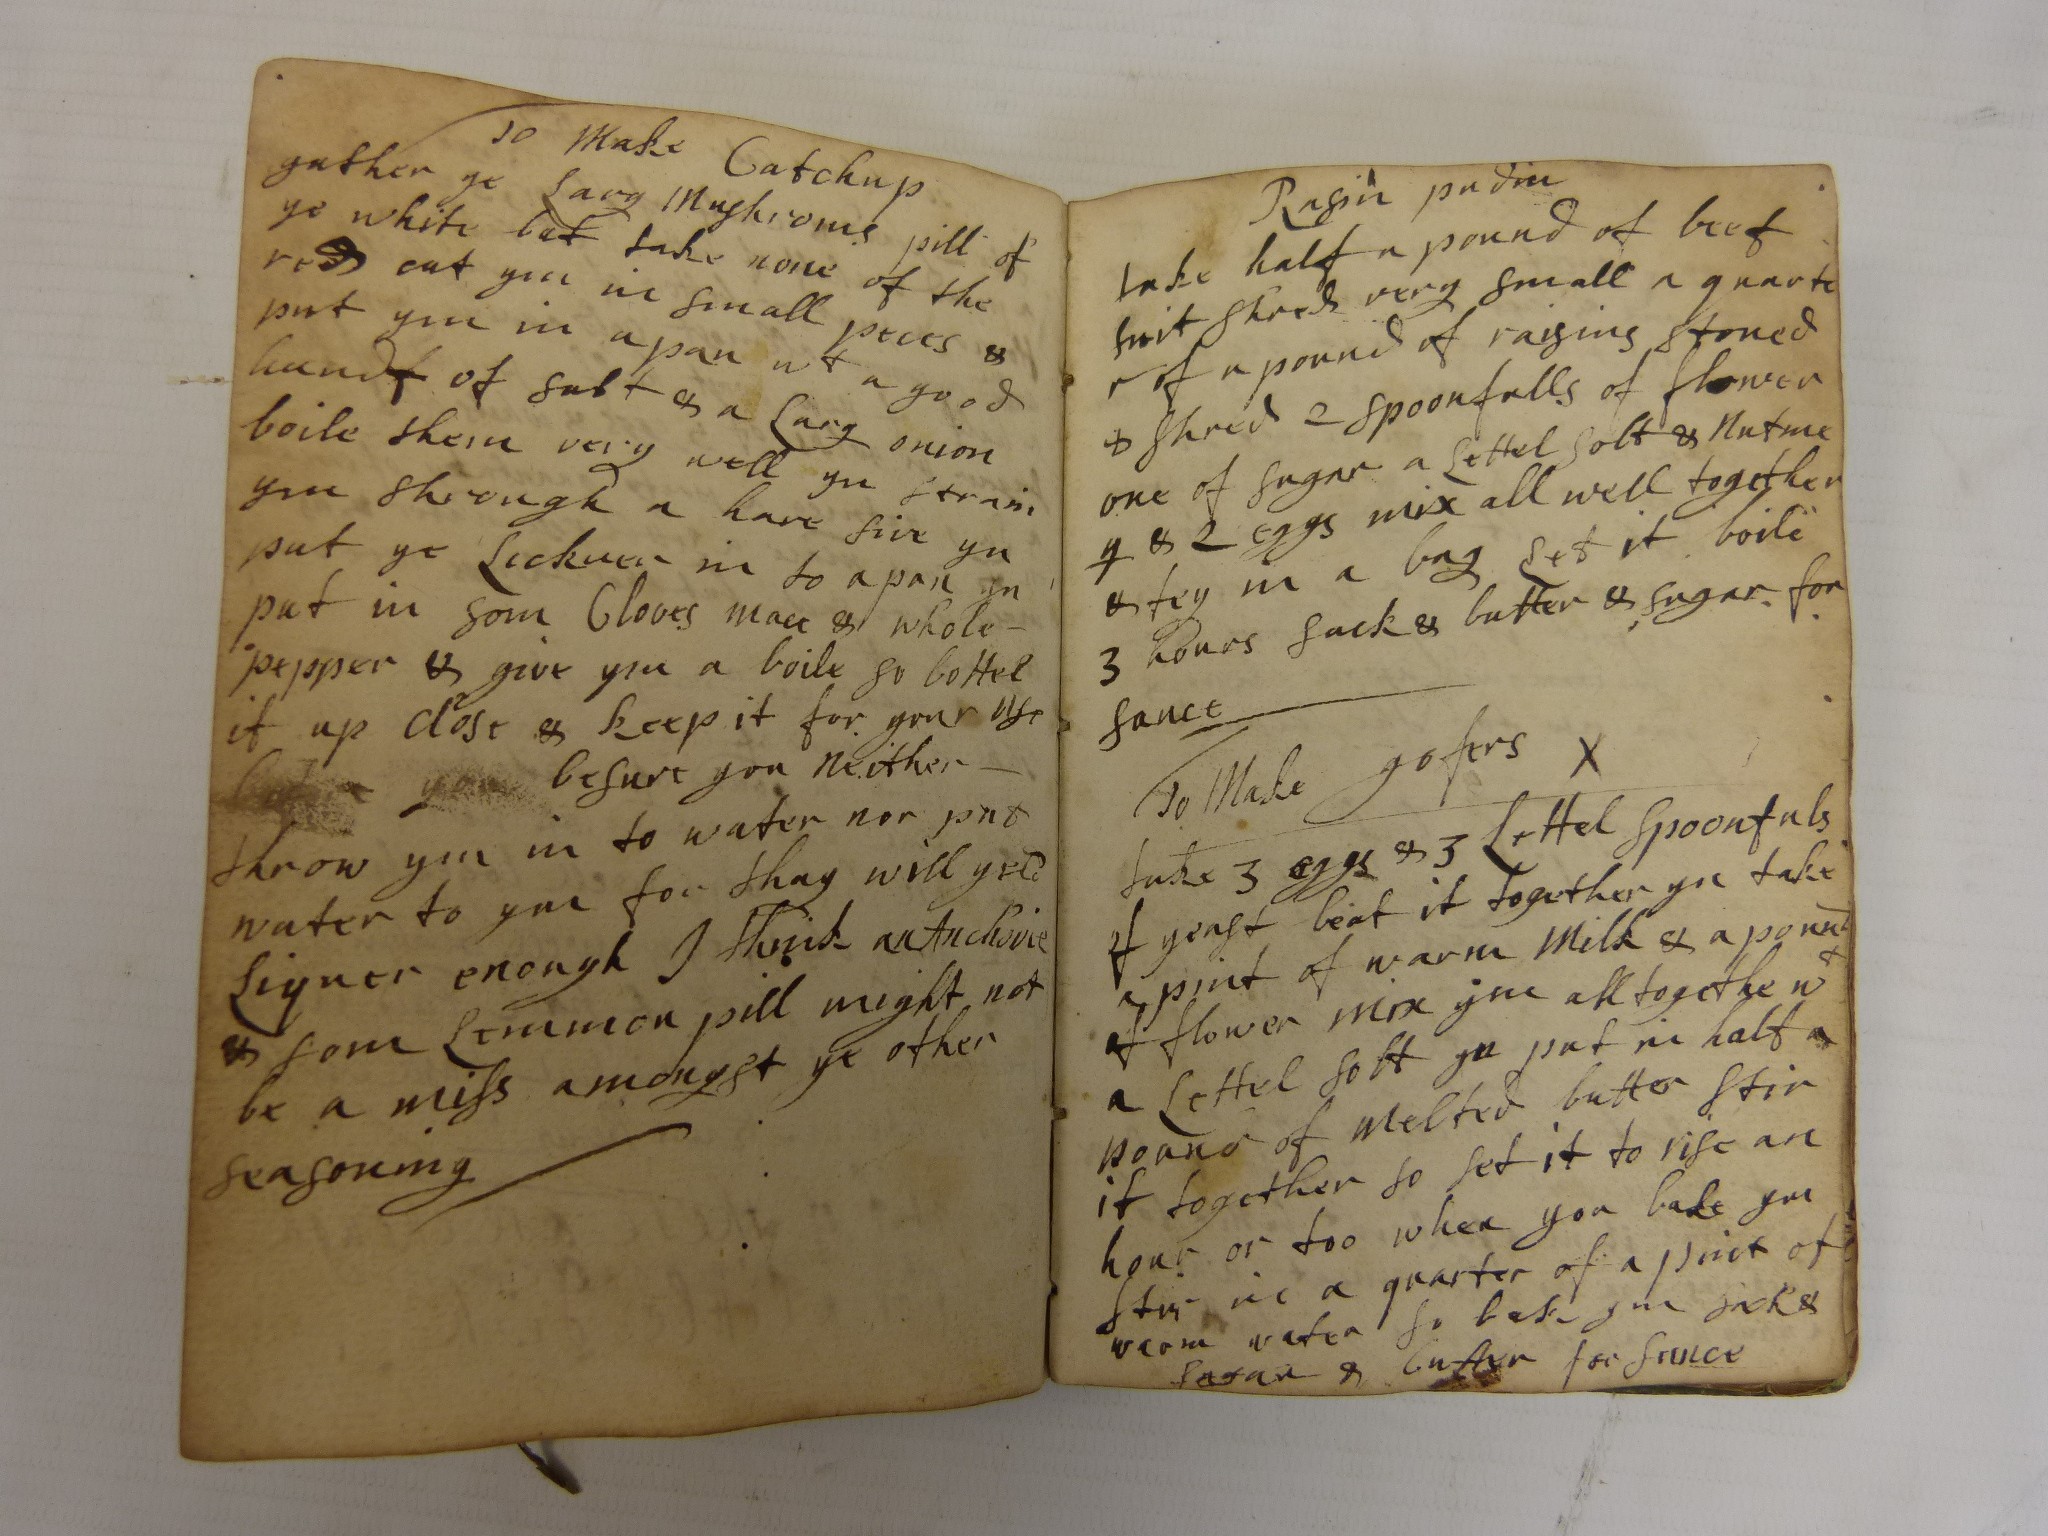 To Make Catchup
gather ye Larg Mushroms pill of
ye white but take none of the
red cut ym in small peces &
put ym in a pan wt a good
handf of salt & a Larg onion
boile them very well yn strain
ym through a hare sive yn
put ye Leckuer in to a pan yn
put in som Cloves mace & whole
pepper & give ym a boile so bottel
it up close & keep it for your use
besure you neither
throw ym in to water nor put
water to ym for thay will yeld
Liquer enough I think an Anchovie
& som Lemmon pill might not
be a miss amongst ye other
seasoning
Rasin pudin
take half a pound of beef
suit shred very small a quarte
r of a pound of raisins stoned
& shred 2 spoonfulls of flower
one of sugar a Lettel solt & Nutme
g & 2 eggs mix all well together
& tey in a bag Let it boile
3 hours sack & butter & sugar for
sauce
To Make gofers X
take 3 eggs & 3 Lettel spoonfuls
of yeast beat it together yn take
a pint of warm Milk & a pound
of flower mix ym all togethe wt
a Lettel solt yn put in half a
pound of melted butter stir
it together so set it to rise an
hour or too when you bake ym
stir in a quarter of a pint of
warm water so bake ym sack &
sugar & butter for sauce